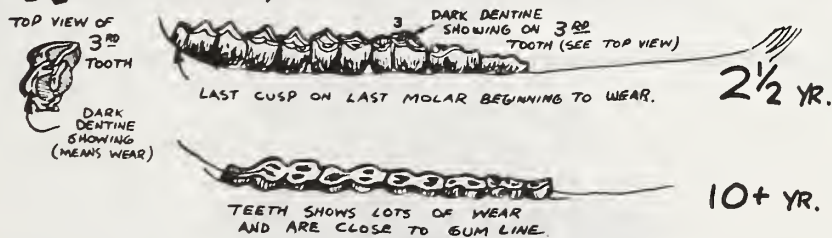 TOP VIEW OF
3RD
TOOTH
DARK
DENTINE
SHOWING
(MEANS WEAR)
3
DARK DENTINE
SHOWING ON 3RD
TOOTH (SEE TOP VIEW)
LAST CUSP ON LAST MOLAR BEGINNING TO WEAR.
2 1/2 YR.
TEETH SHOWS LOTS OF WEAR
AND ARE CLOSE TO GUM LINE.
10+ YR.